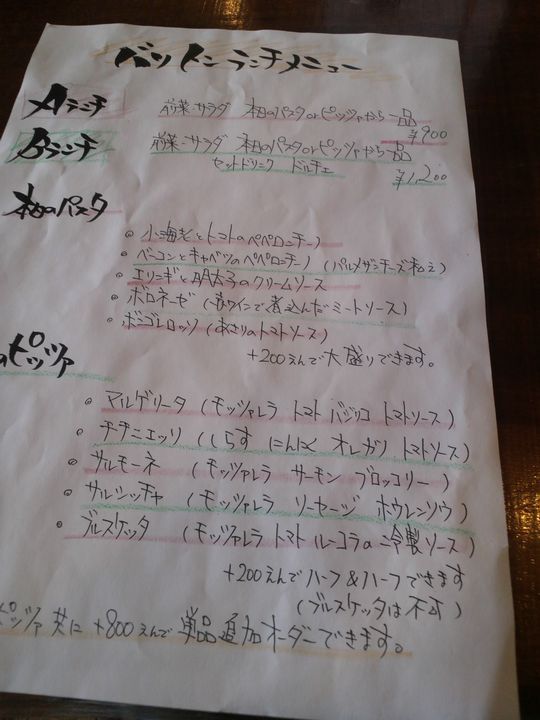 バントン ランチメニュー
Aランチ 前菜・サラダ 本日のパスタorピッツァから一品
¥900
Bランチ 前菜・サラダ 本日のパスタorピッツァから一品
セットドリンク ドルチェ ¥1,200
本日のパスタ
小海老とトマトのペペロンチーノ
ベーコンとキャベツのペペロンチーノ (パルメザンチーズ和え)
エリンギと明太子のクリームソース
ボロネーゼ (赤ワインで煮込んだミートソース)
ボンゴレロッソ (あさりのトマトソース)
+200えんで大盛りできます。
のピッツァ
マルゲリータ (モッツァレラ トマト バジリコ トマトソース)
チチニエッリ (しらす にんにく オレガノ トマトソース)
サルモーネ (モッツァレラ サーモン ブロッコリー)
サルシッチャ (モッツァレラ ソーセージ ホウレンソウ)
ブルスケッタ (モッツァレラ トマト ルーコラの冷製ソース)
+200えんでハーフ&ハーフできます
(ブルスケッタは不可)
ピッツァ共に +800えんで 単品追加オーダーできます。